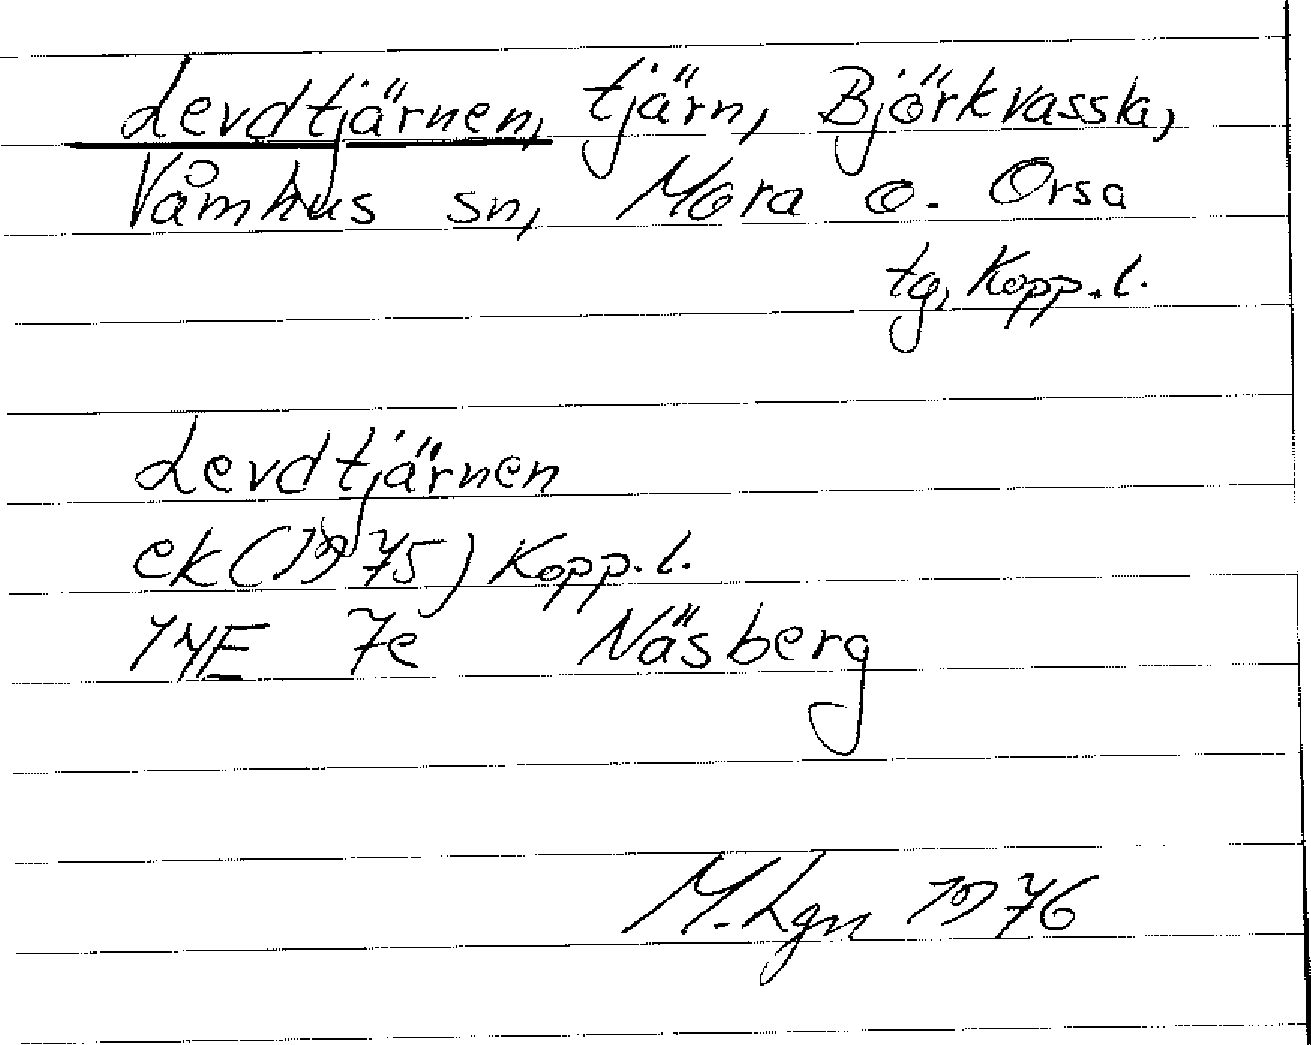 Levdtjärnen, tjärn, Björkvassla,
Våmhus sn, Mora o. Orsa
tg, Kopp.l.
Levdtjärnen
ek (1975) Kopp.l.
14E 7e Näsberg
M.Lgn 1976